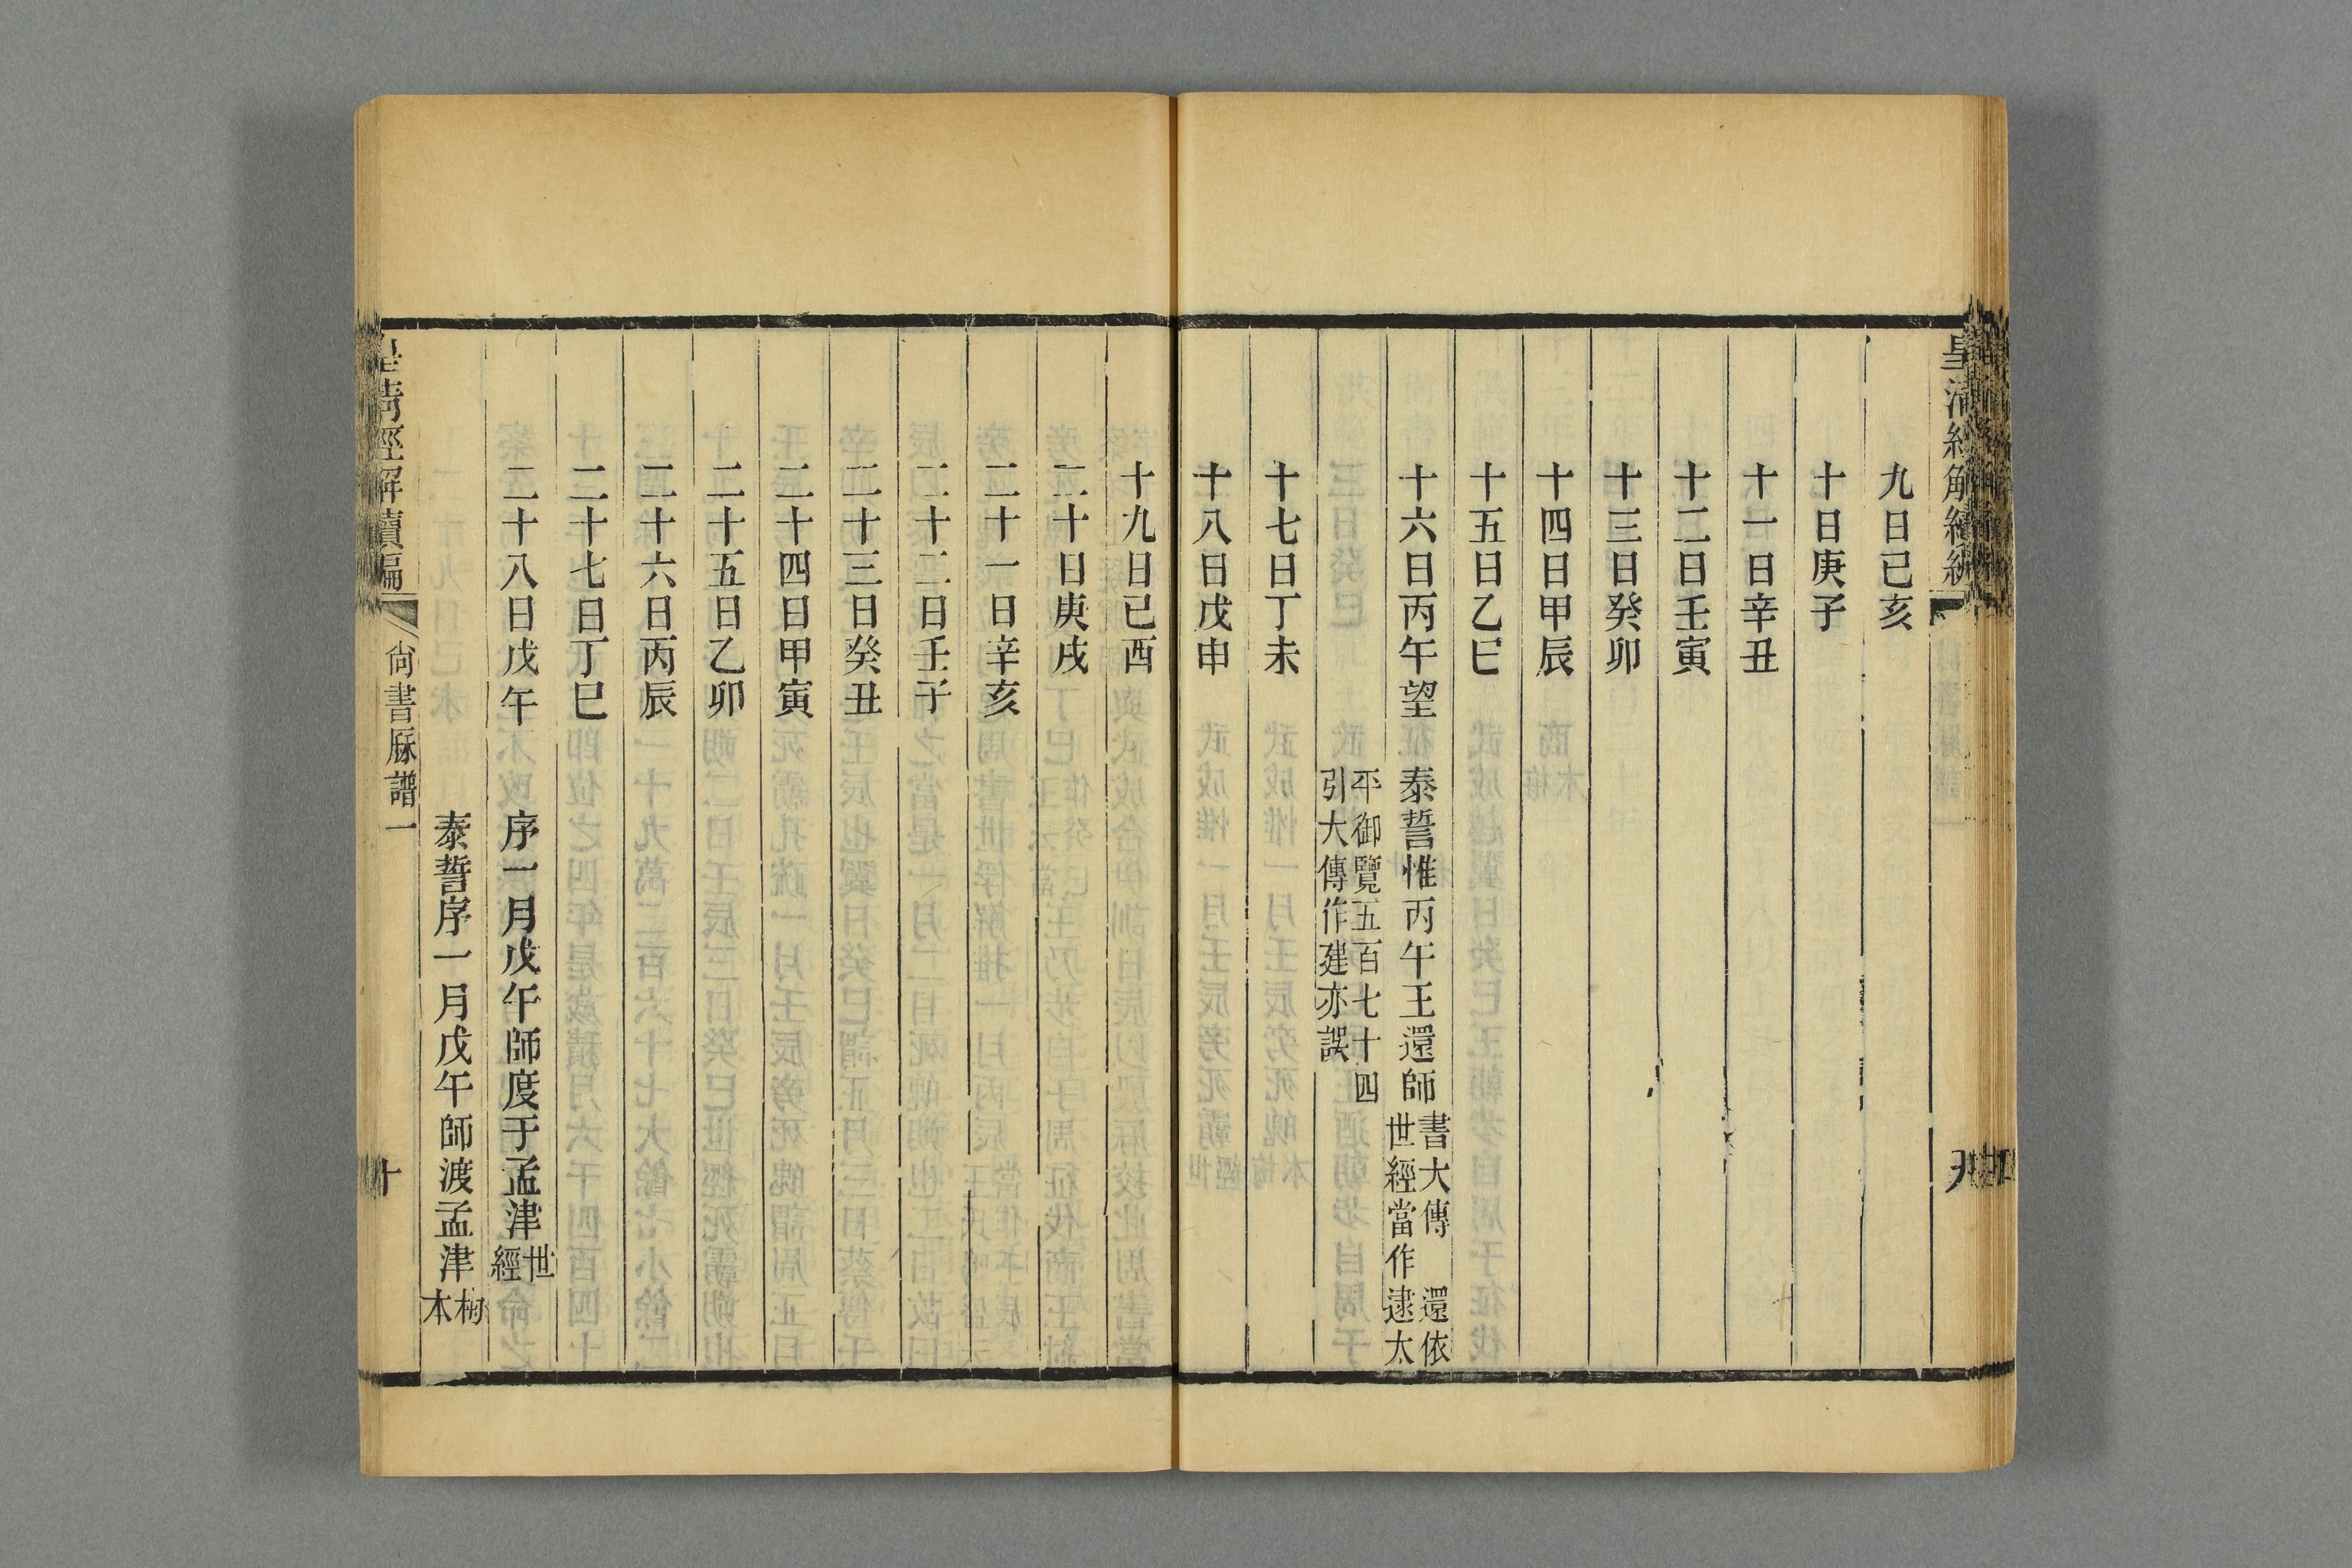 九日己亥
十日庚子
十一日辛丑
十二日壬寅
十三日癸卯
十四日甲辰
十五日乙巳
十六日丙午望 泰誓惟丙午王還師 書大傳 還依
世經當作逮太
平御覽五百七十四
引大傳作建亦誤
十七日丁未
十八日戊申
十九日己酉
二十日庚戌
二十一日辛亥
二十二日壬子
二十三日癸丑
二十四日甲寅
二十五日乙卯
二十六日丙辰
二十七日丁巳
二十八日戊午 序一月戊午師度于孟津 世
經
泰誓序一月戊午師渡孟津
本
皇清經解續編 尙書厤譜一 十